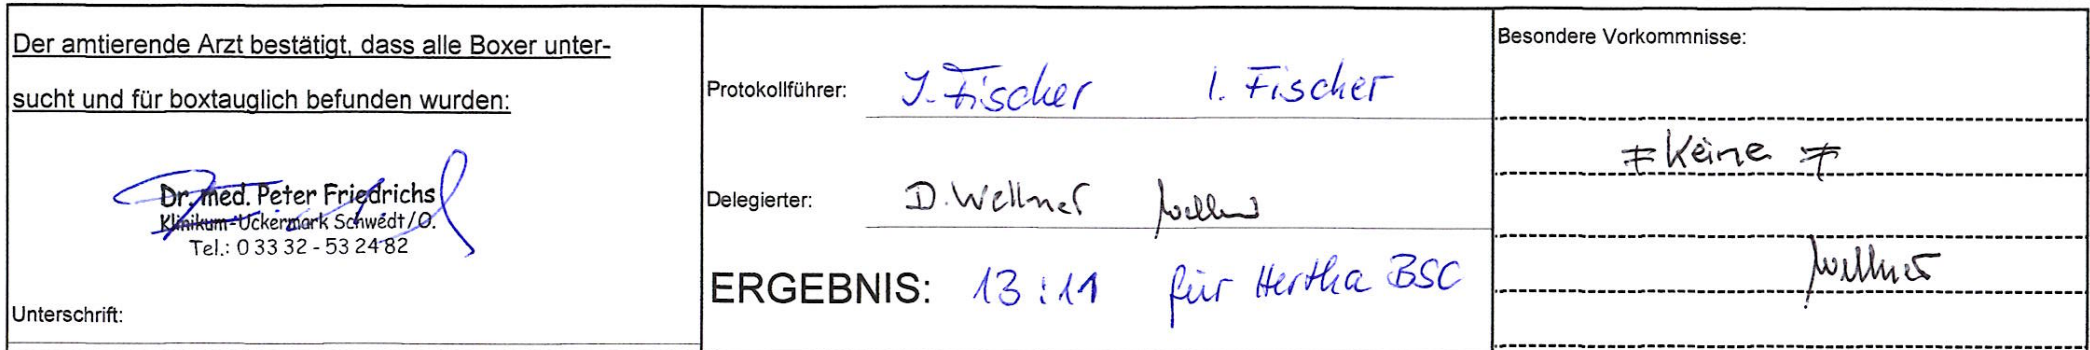 Der amtierende Arzt bestätigt, dass alle Boxer unter-
sucht und für boxtauglich befunden wurden:
Dr. med. Peter Friedrichs
Klinikum-Uckermark Schwedt/O.
Tel.: 0 33 32 - 53 24 82
Unterschrift:
Protokollführer: I. Fischer I. Fischer
Delegierter: D. Wellner Wellner
ERGEBNIS: 13:11 für Hertha BSC
Besondere Vorkommnisse:
Keine
Wellner